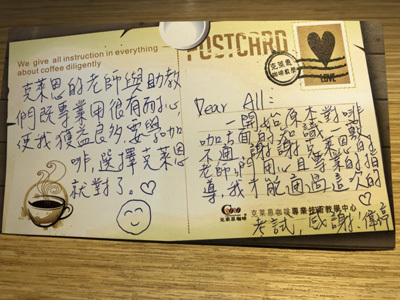 We give all instruction in everything
about coffee diligently
克萊恩的老師與助教
們既專業用很有耐心
使我獲益良多,要學咖
啡,選擇克萊恩
就對了。
POSTCARD
克萊恩
咖啡教學
LOVE
Dear All:
一開始原本對啡
咖方面的知識一竅
不通,謝謝克萊恩的
老師們用心且專業的指
導,我才能通過這次的
考試,感謝!
克萊恩咖啡
克萊恩咖啡專業技術教學中心